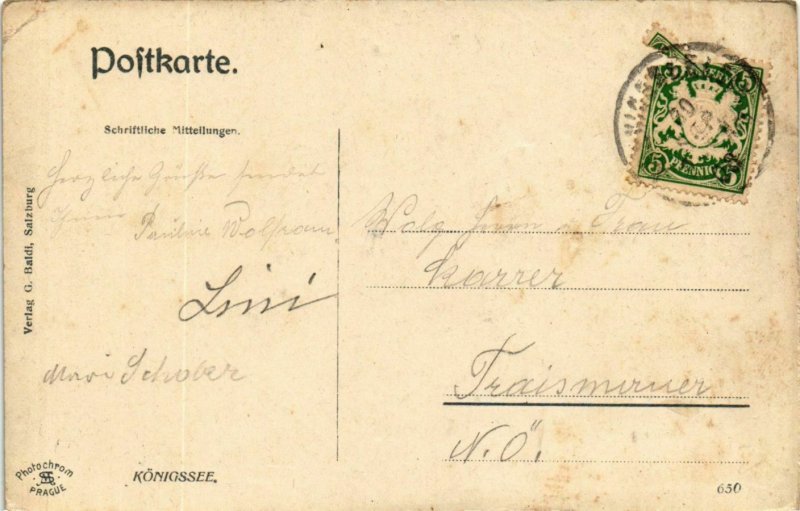 Postkarte.
Schriftliche Mitteilungen.
Herzliche Grüße sendet
Ihnen
Pauline Wolfram.
Lini
Schober
Verlag G. Baldi, Salzburg
Photochrom
PRAGUE
KÖNIGSSEE.
5
5 PFENNIG 5
Wolg. Herrn u Frau
Karrer
Traismauer
N. Ö.
650